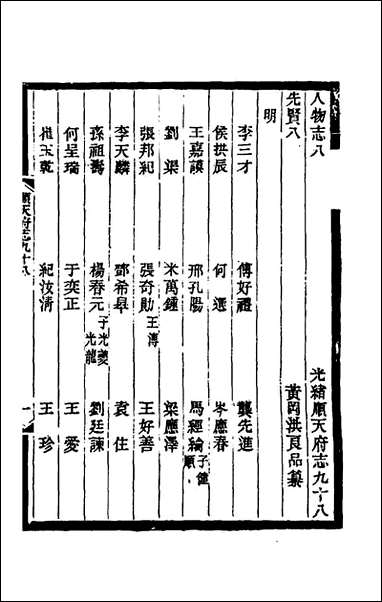 人物志八 光緒順天府志九十八
先賢八 黃岡洪良品纂
明
李三才 傅好禮 龔先進
侯拱辰 何選 岑應春
王嘉謨 邢孔陽 馬經綸子健順
劉渠 米萬鍾 梁應澤
張邦紀 張奇勛王溥 王好善
李天麟 鄧希皋 袁佳
孫祖壽 楊春元子光夔光龍 劉廷諫
何呈瑞 于奕正 王愛
崔玉乾 紀汝清 王珍
順天府志九十八 一